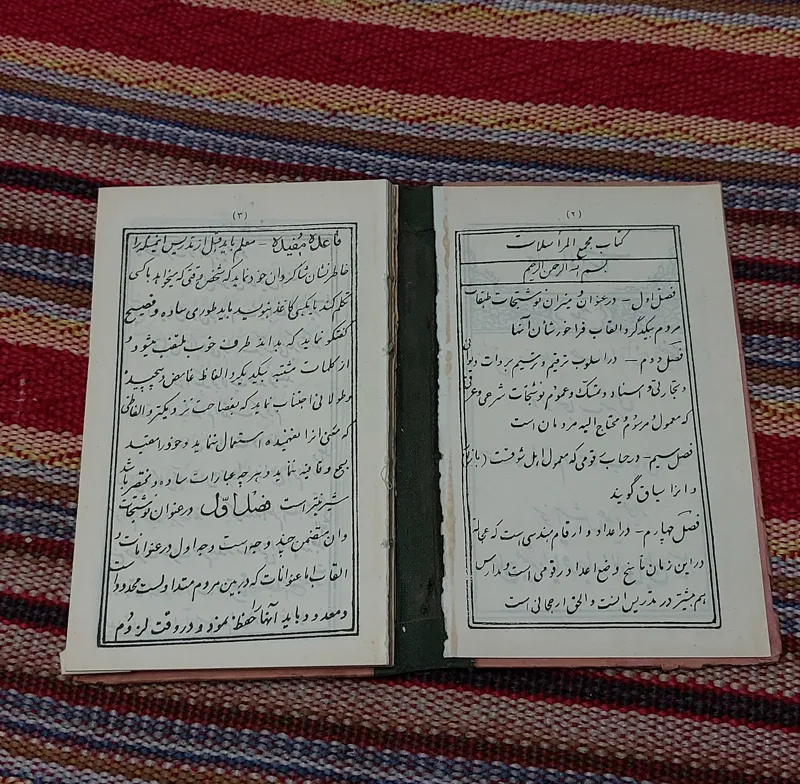 (۲)
کتاب مجمع المراسلات
بسم الله الرحمن الرحیم
فصل اول – در عنوان و میزان نوشتجات طبقات
مردم بیکدیگر و القاب فراخور شأن آنها
فصل دوم – در اسلوب ترقیم و ترسیم بردات دیوانی
و تجارتی و اسناد و تمسک و عموم نوشتجات شرعی و عرفی
که معمول و مرسوم و محتاج الیه مردمان است
فصل سیم – در حساب رقومی که معمول اهل شوشتر (بازار)
و انرا سیاق گویند
فصل چهارم – در اعداد و ارقام هندسی است که عجالة
در این زمان ناسخ وضع اعداد رقومی است و مدارس
هم بیشتر در تدریس است و الحق ارجحانی است
(۳)
قاعده مفیده – معلم باید قبل از تدریس اینمیکدرا
خاطر نشان شاگردان خود نماید که شخص وقتی که میخواهد با کسی
تکلم کند یا بکسی کاغذ بنویسد باید طوری ساده و فصیح
گفتگو نماید که بدانند طرف خوب ملتفت میشود و
از کلمات مشتبه بیکدیگر و الفاظ غامض و پیچیده
و طولانی اجتناب نماید که بفصاحت نزدیکتر و الفاظی
که معنی انرا نفهمیده استعمال ننماید و خود را مقید
بسجع و قافیه ننماید و هر چه عبارات ساده و مختصر باشد
شیرینتر است فصل اول در عنوان نوشتجات
و ان متضمن چند وجه است وجه اول در عنوانات و
القاب اما عنوانات که در بین مردم متداولست محدود است
و معدود و باید آنها را حفظ نمود و در وقت لزوم